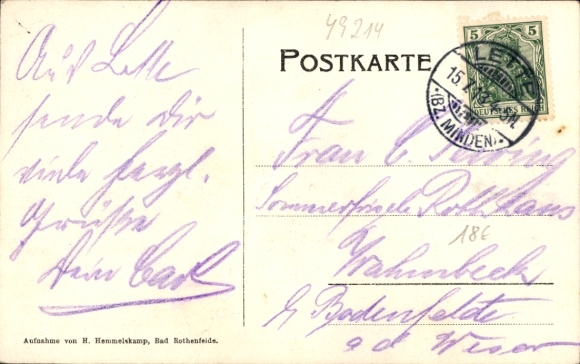 49214
POSTKARTE
5 5
DEUTSCHES REICH
LETTE
15.7.
(BZ. MINDEN)
Aus Lette
sende Dir
viele herzl.
Grüße
Dein Carl
Frau C.
Sommerfrische Rotthaus
18€
Wahmbeck
b/ Bodenfelde
a. d. Weser
Aufnahme von H. Hemmelskamp, Bad Rothenfelde.